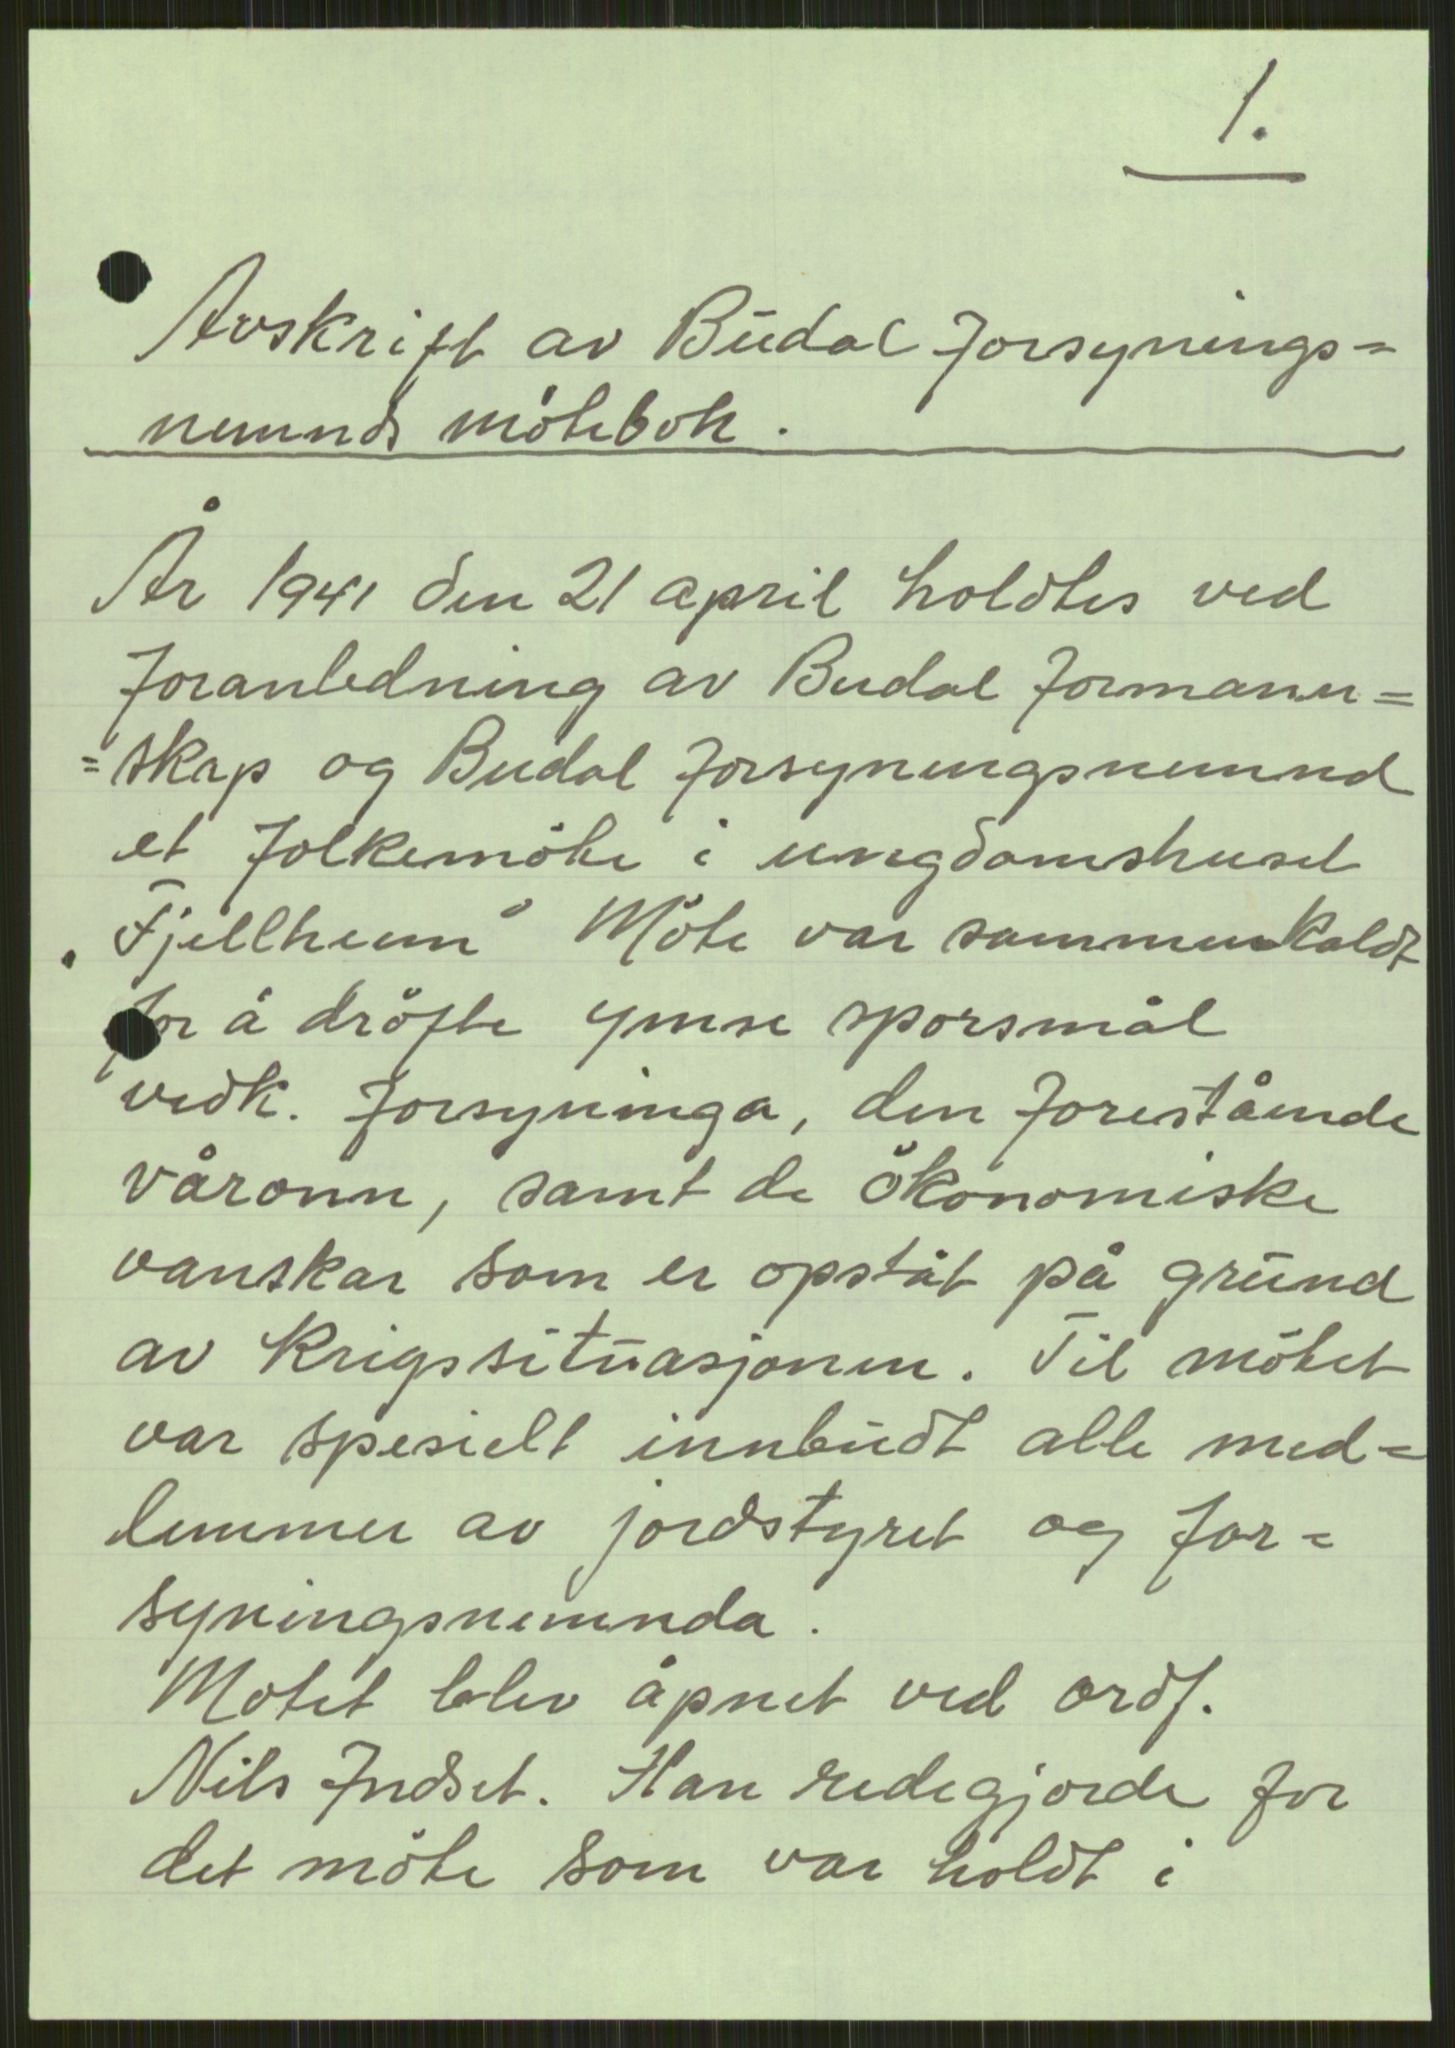 1.
Avskrift av Budal forsynings=
nemnds mötebok.
År 1941 den 21 april holdtes ved
foranledning av Budal formann=
=skap og Budal forsyningsnemnd
et folkemöte i ungdomshuset
„Fjellheim" Möte var sammenkaldt
for å dröfte ymse sporsmål
vedk. forsyninga, den forestående
våronn, samt de ökonomiske
vanskar som er opståt på grund
av krigssituasjonen. Til mötet
var spesielt innbudt alle med=
lemmer av jordstyret og for=
syningsnemnda.
Motet blev åpnet ved ordf.
Nils Indset. Han redegjorde for
det möte som var holdt i